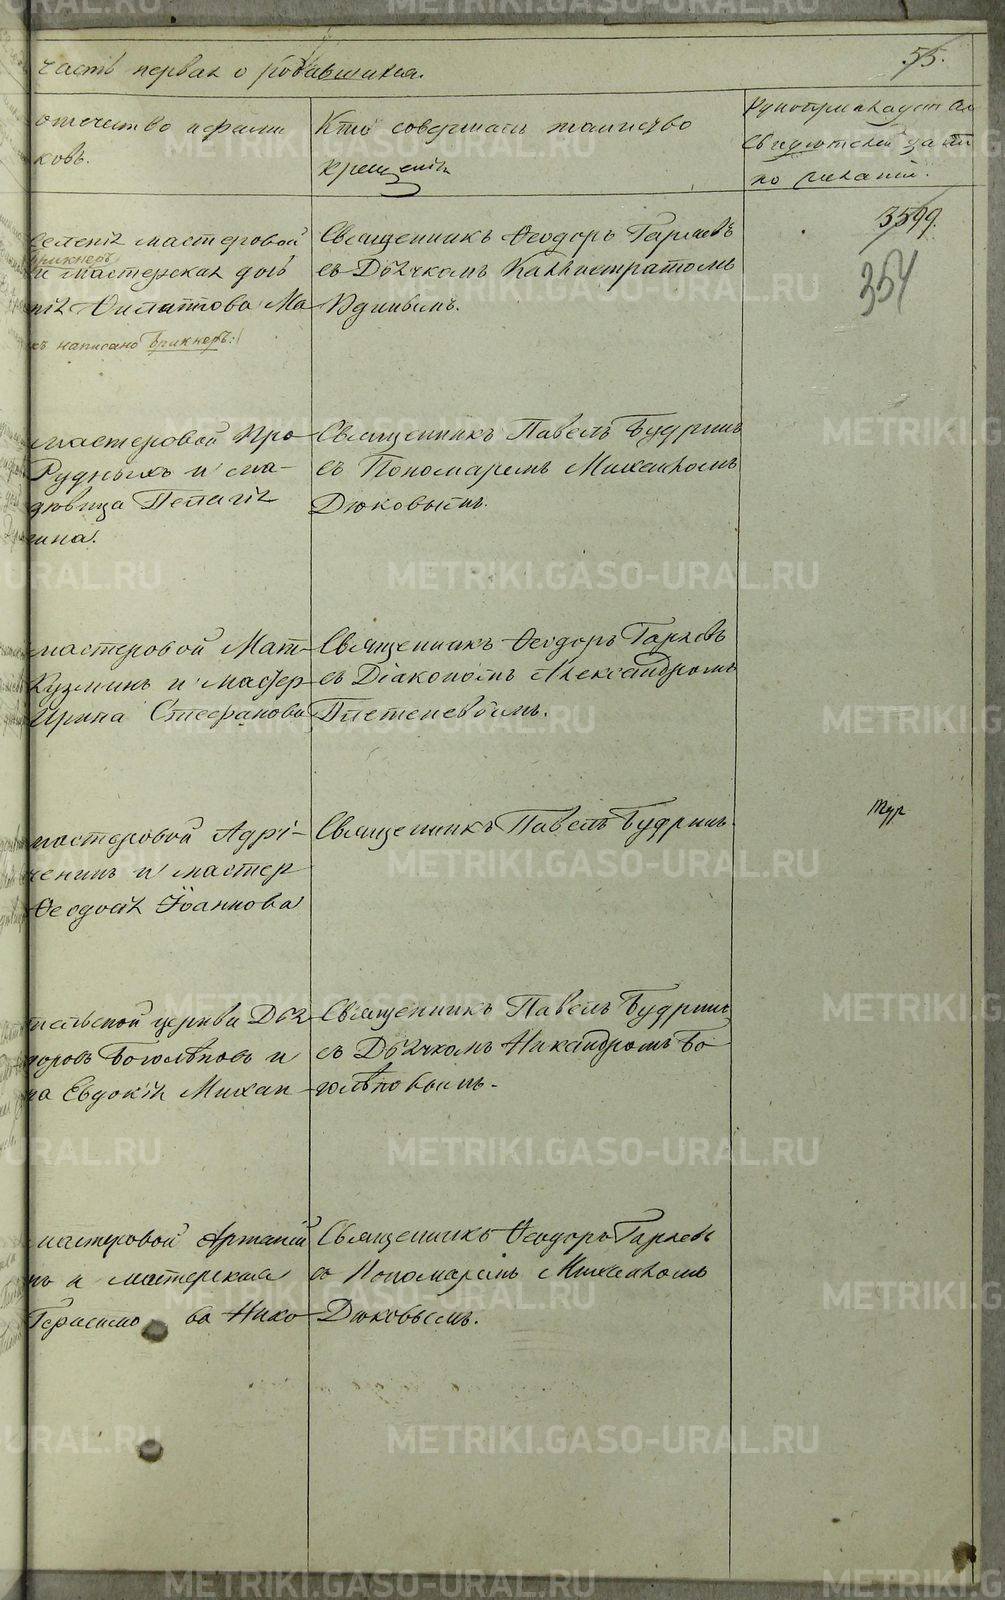 часть первая о родившихся.
55.
отечество и фамилі
ковъ.
Кто совершалъ таинство
крещенія
Рукоприкладство
свидѣтелей записи
по желанію.
3599.
354
селенія мастеровой
Брикнеръ
и мастерская дочь
нія Филиппова Ма
къ написано Брикнеръ:
Священникъ Ѳеодоръ Гаряевъ
съ Дьячкомъ Каллистратомъ
Удинымъ.
мастеровой Про
Рудныхъ и ма-
дѣвица Пелагія
ина.
Священникъ Павелъ Будринъ
съ Пономаремъ Михаиломъ
Дюковымъ.
мастеровой Мат-
Кузминъ и мастер
Ирина Стефанова
Священникъ Ѳеодоръ Гаряевъ
съ Діакономъ Александромъ
Плетеневымъ.
мастеровой Адрі-
ченинъ и мастер
Ѳеодосія Іоаннова
Священникъ Павелъ Будринъ.
Тур
тельской церкви Дья
доровъ Боголѣповъ и
на Евдокія Михаи
Священникъ Павелъ Будринъ
съ Дьячкомъ Никандромъ Бо-
голѣповымъ.
мастеровой Артемій
нъ и мастерская
Герасимова Нико
Священникъ Ѳеодоръ Гаряевъ
съ Пономаремъ Михаиломъ
Дюковымъ.
METRIKI.GASO-URAL.RU